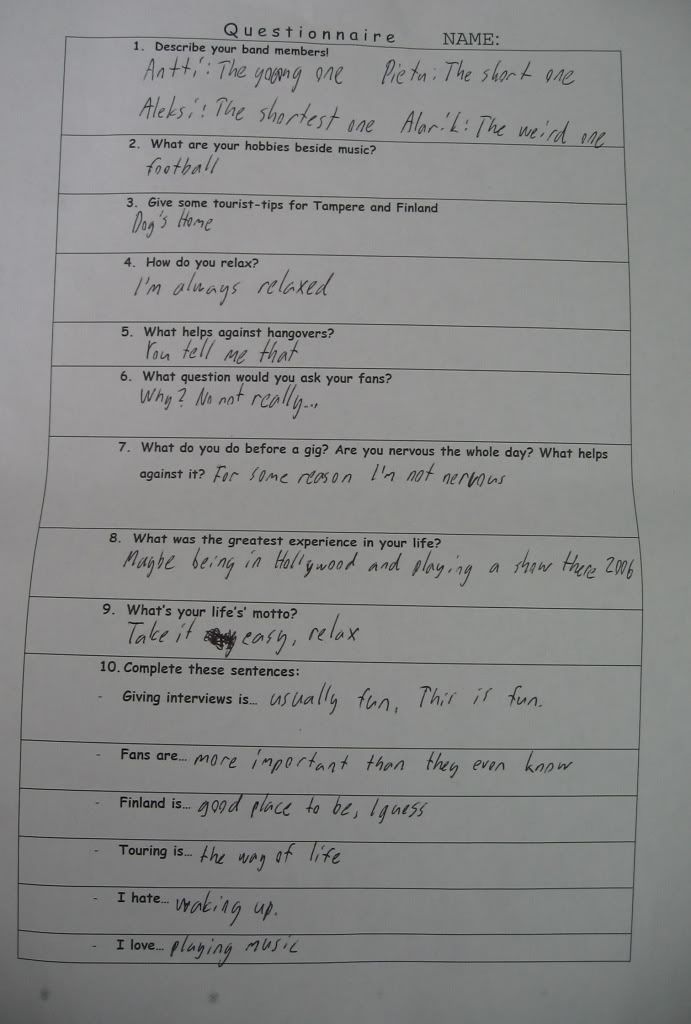 Questionnaire NAME:
1. Describe your band members!
Antti: The young one Pietu: The short one
Aleksi: The shortest one Alarik: The weird one
2. What are your hobbies beside music?
football
3. Give some tourist-tips for Tampere and Finland
Dog's Home
4. How do you relax?
I'm always relaxed
5. What helps against hangovers?
You tell me that
6. What question would you ask your fans?
Why? No not really...
7. What do you do before a gig? Are you nervous the whole day? What helps
against it? For some reason I'm not nervous
8. What was the greatest experience in your life?
Maybe being in Hollywood and playing a show there 2006
9. What's your life's' motto?
Take it easy, relax
10. Complete these sentences:
- Giving interviews is... usually fun, This is fun.
- Fans are... more important than they even know
- Finland is... good place to be, I guess
- Touring is... the way of life
- I hate... waking up.
- I love... playing music